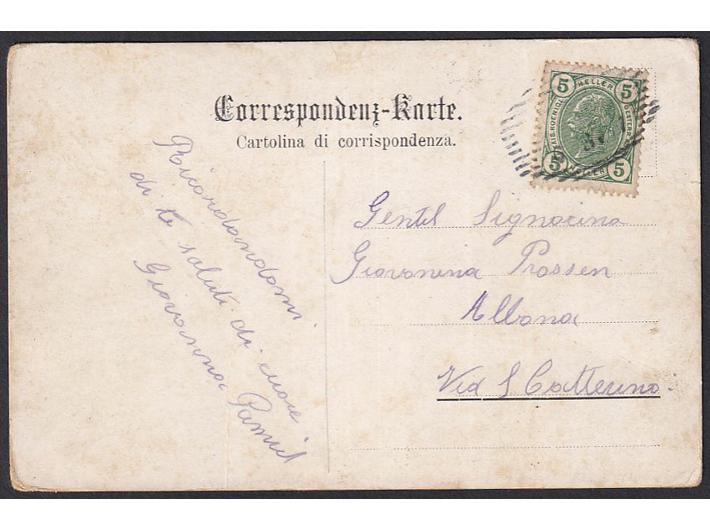 Correspondenz-Karte.
Cartolina di corrispondenza.
Ricordandomi
di te saluti di cuore
Giovanna
5 HELLER 5
5 HELLER 5
Gentil Signorina
Giovanina Prossen
Albona
Via S Catterina